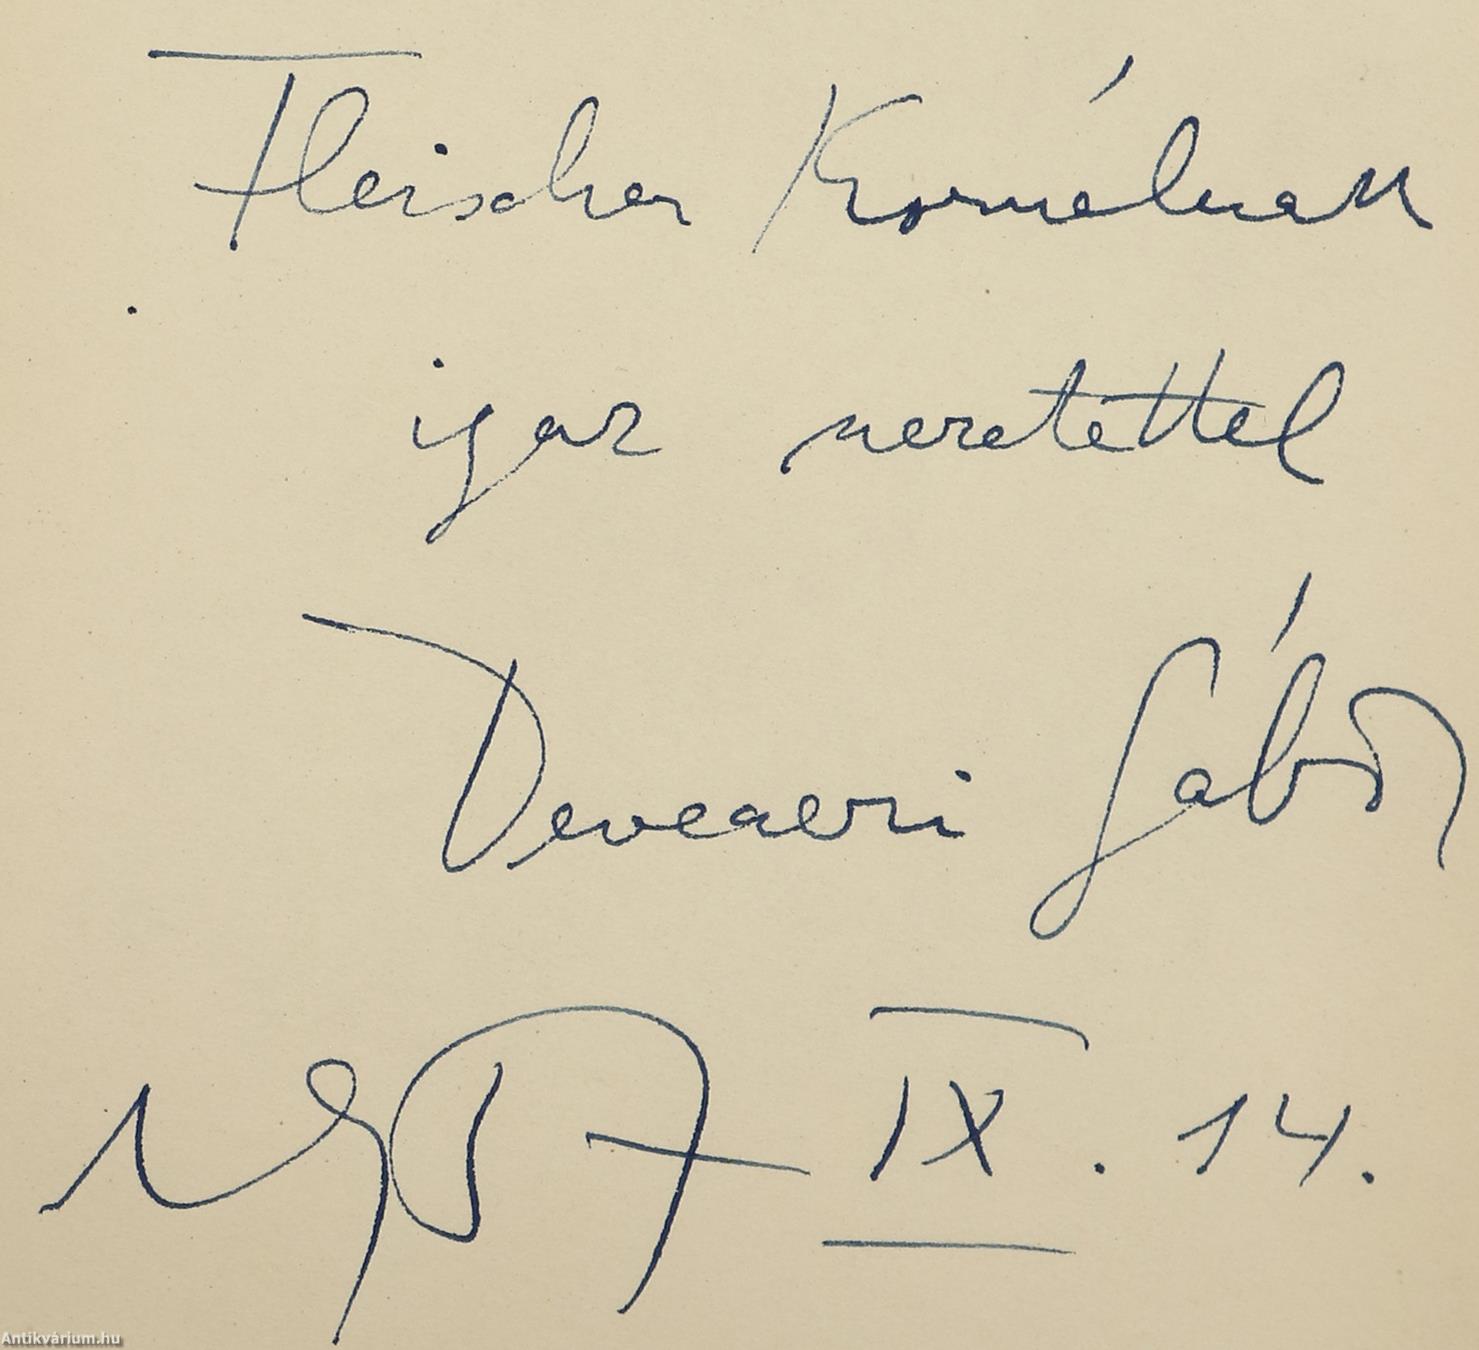 Fleischer Kornélnak
igaz szeretettel
Devecseri Gábor
1957 IX. 14.
Antikvárium.hu